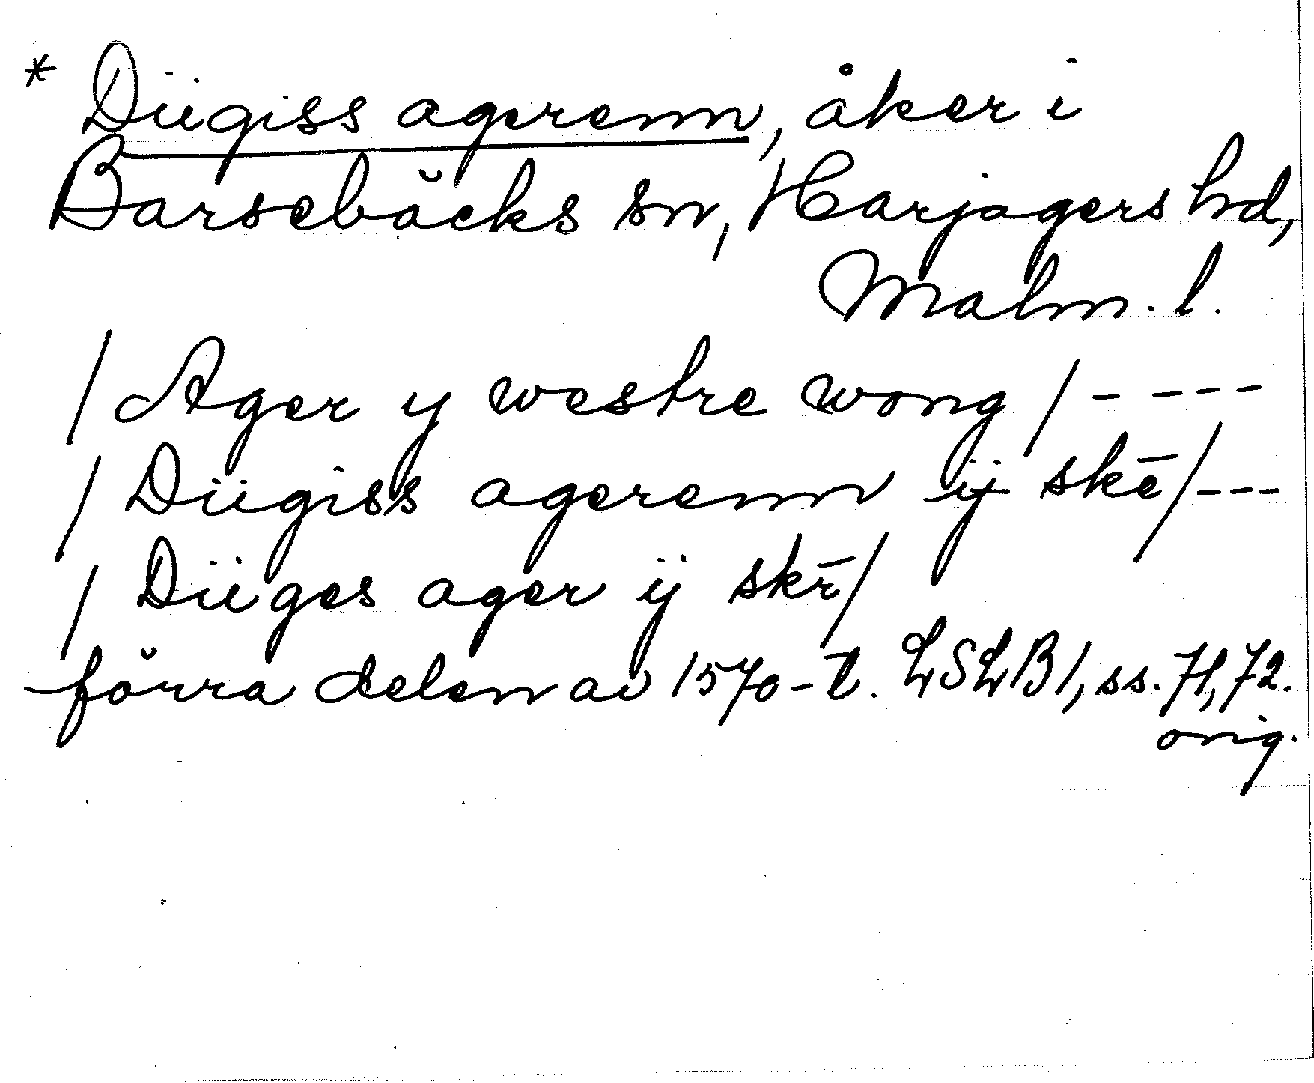 * Düigiss agerenn, åker i
Barsebäcks sn, Harjagers hd,
Malm. l.
/ Ager y westre wong / - - - -
/ Düigiss agerenn ÿ skē / - - -
/ Düiges ager ÿ skr̄ /
förra delen av 1570-t. LSLB1, ss. 71, 72.
orig.